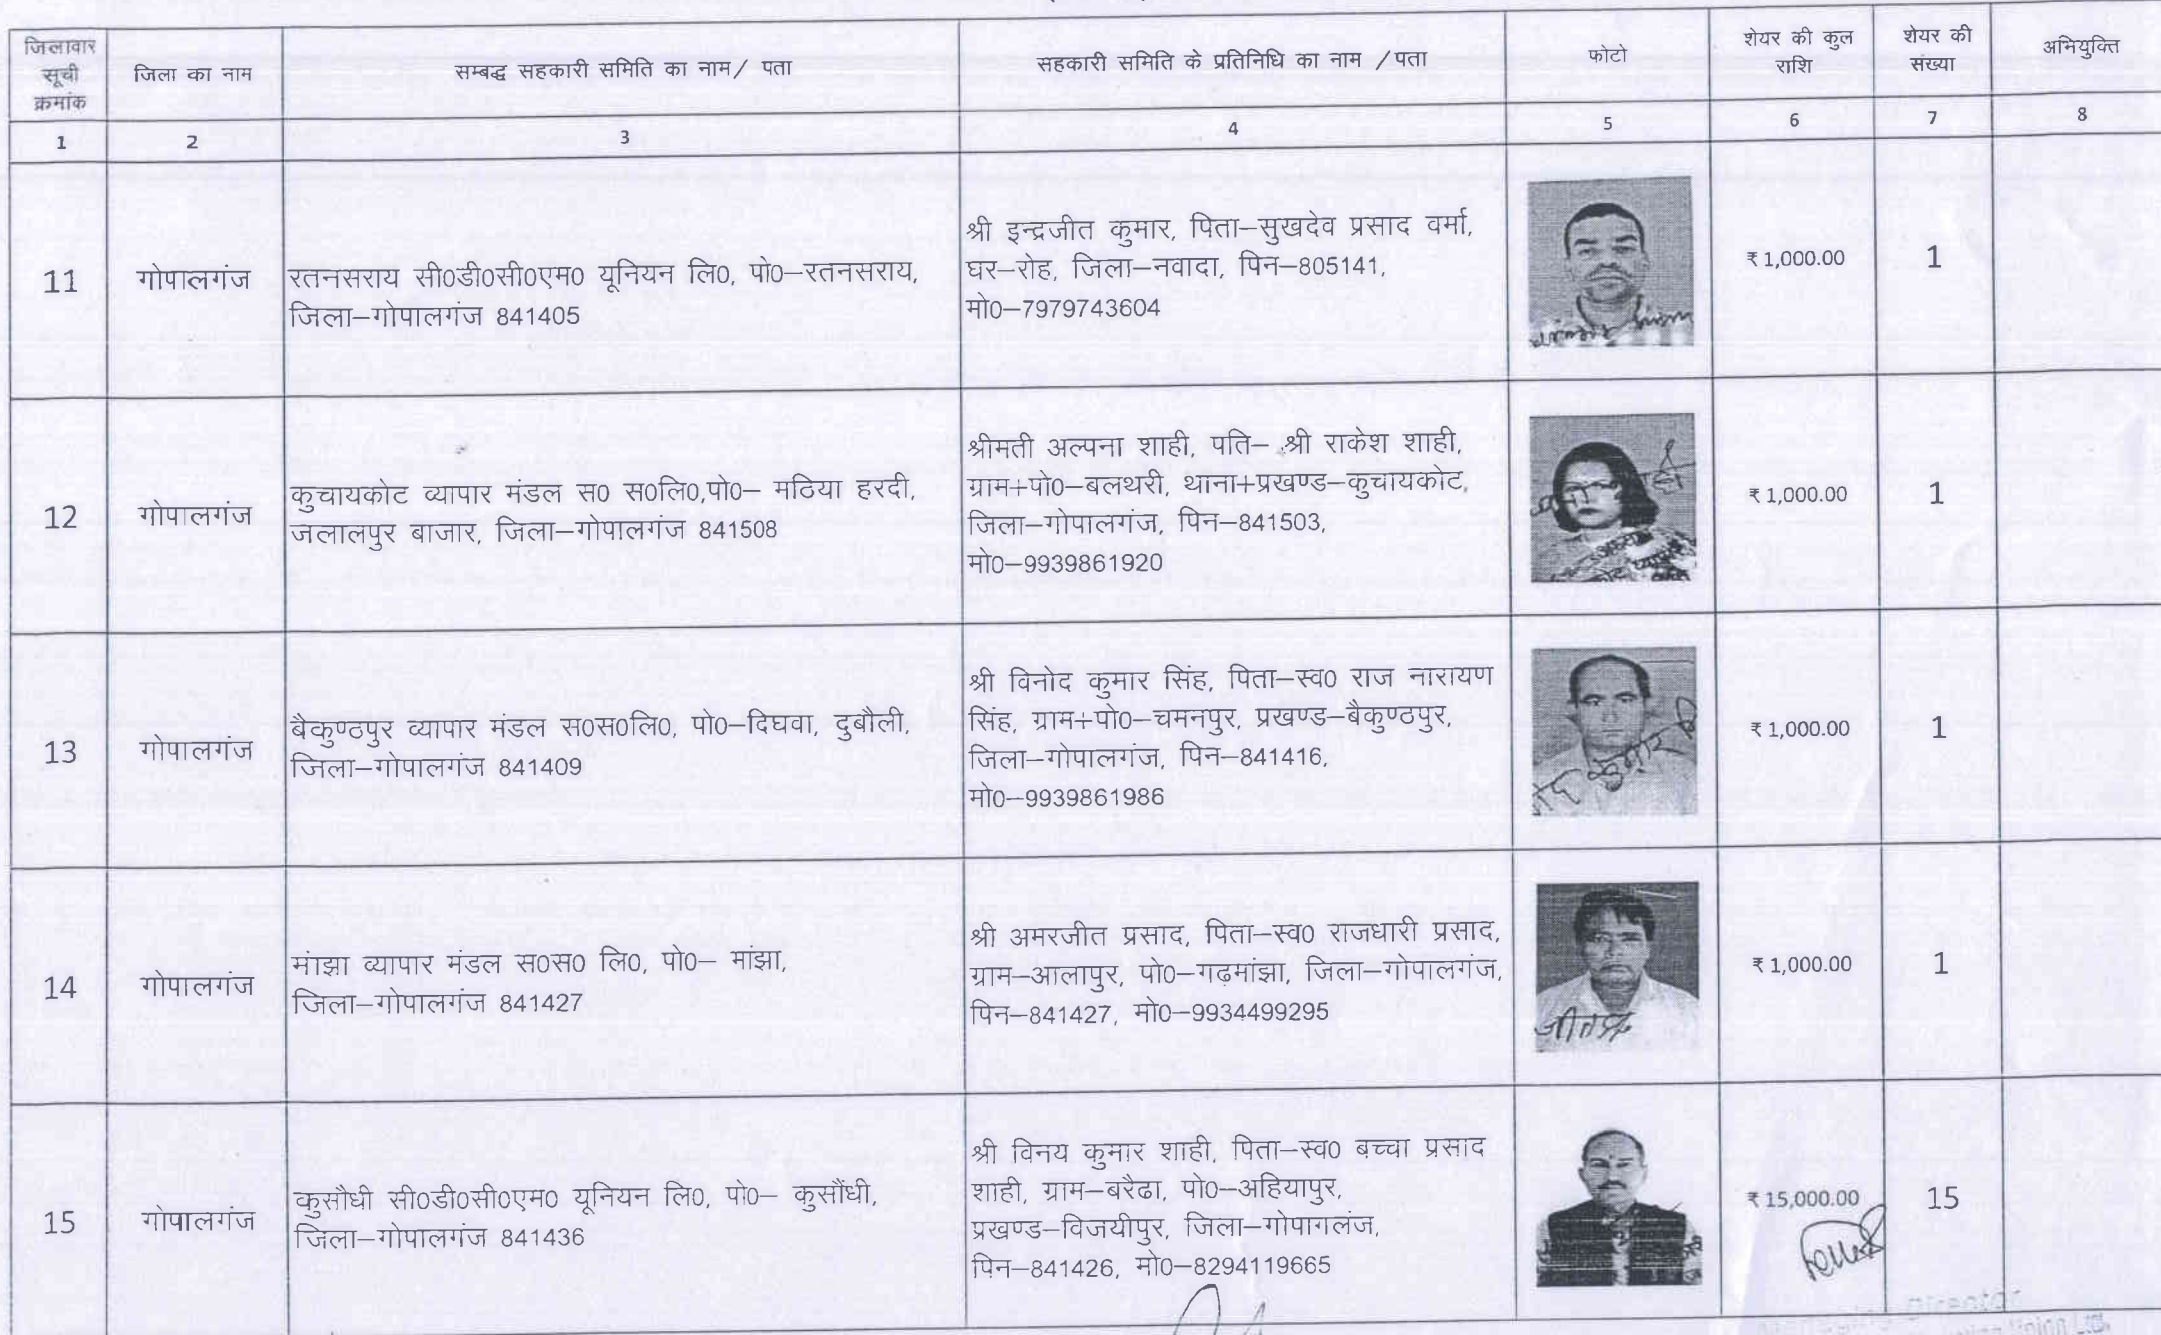 जिलावार सूची क्रमांक
जिला का नाम
सम्बद्ध सहकारी समिति का नाम/ पता
सहकारी समिति के प्रतिनिधि का नाम /पता
फोटो
शेयर की कुल राशि
शेयर की संख्या
अभियुक्ति
1 2 3 4 5 6 7 8
11
गोपालगंज
रतनसराय सी0डी0सी0एम0 यूनियन लि0, पो0–रतनसराय,
जिला–गोपालगंज 841405
श्री इन्द्रजीत कुमार, पिता–सुखदेव प्रसाद वर्मा,
घर–रोह, जिला–नवादा, पिन–805141,
मो0–7979743604
₹ 1,000.00
1
12
गोपालगंज
कुचायकोट व्यापार मंडल स0 स0लि0,पो0– मठिया हरदी,
जलालपुर बाजार, जिला–गोपालगंज 841508
श्रीमती अल्पना शाही, पति– श्री राकेश शाही,
ग्राम+पो0–बलथरी, थाना+प्रखण्ड–कुचायकोट,
जिला–गोपालगंज, पिन–841503,
मो0–9939861920
₹ 1,000.00
1
13
गोपालगंज
बैकुण्ठपुर व्यापार मंडल स0स0लि0, पो0–दिघवा, दुबौली,
जिला–गोपालगंज 841409
श्री विनोद कुमार सिंह, पिता–स्व0 राज नारायण
सिंह, ग्राम+पो0–चमनपुर, प्रखण्ड–बैकुण्ठपुर,
जिला–गोपालगंज, पिन–841416,
मो0–9939861986
कुमार
₹ 1,000.00
1
14
गोपालगंज
मांझा व्यापार मंडल स0स0 लि0, पो0– मांझा,
जिला–गोपालगंज 841427
श्री अमरजीत प्रसाद, पिता–स्व0 राजधारी प्रसाद,
ग्राम–आलापुर, पो0–गढ़मांझा, जिला–गोपालगंज,
पिन–841427, मो0–9934499295
₹ 1,000.00
1
15
गोपालगंज
कुसौधी सी0डी0सी0एम0 यूनियन लि0, पो0– कुसौंधी,
जिला–गोपालगंज 841436
श्री विनय कुमार शाही, पिता–स्व0 बच्चा प्रसाद
शाही, ग्राम–बरैढा, पो0–अहियापुर,
प्रखण्ड–विजयीपुर, जिला–गोपागलंज,
पिन–841426, मो0–8294119665
₹ 15,000.00
15